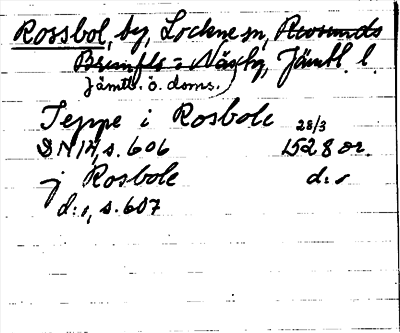 Rossbol, by, Lockne sn, Revsunds
Brunflo o Näsby, Jämtl. l.
Jämtl. ö. doms.
Jeppe i Rosbole 28/3
DN 14, s. 606 1528 or.
j Rosbole d:o
d:o, s. 607